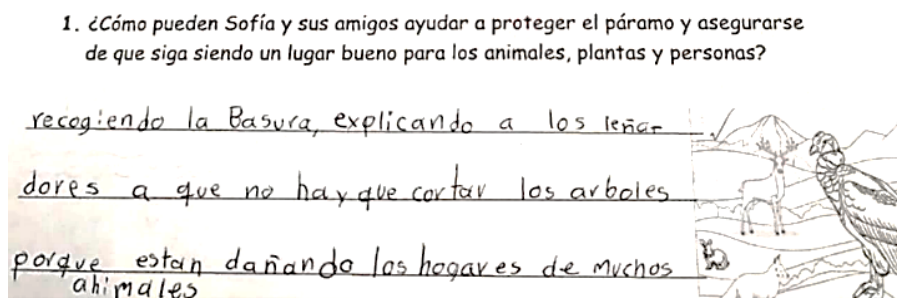 1. ¿Cómo pueden Sofía y sus amigos ayudar a proteger el páramo y asegurarse
de que siga siendo un lugar bueno para los animales, plantas y personas?
recogiendo la Basura, explicando a los leñar
dores a que no hay que cortar los arboles
porque estan dañando los hogares de muchos
animales